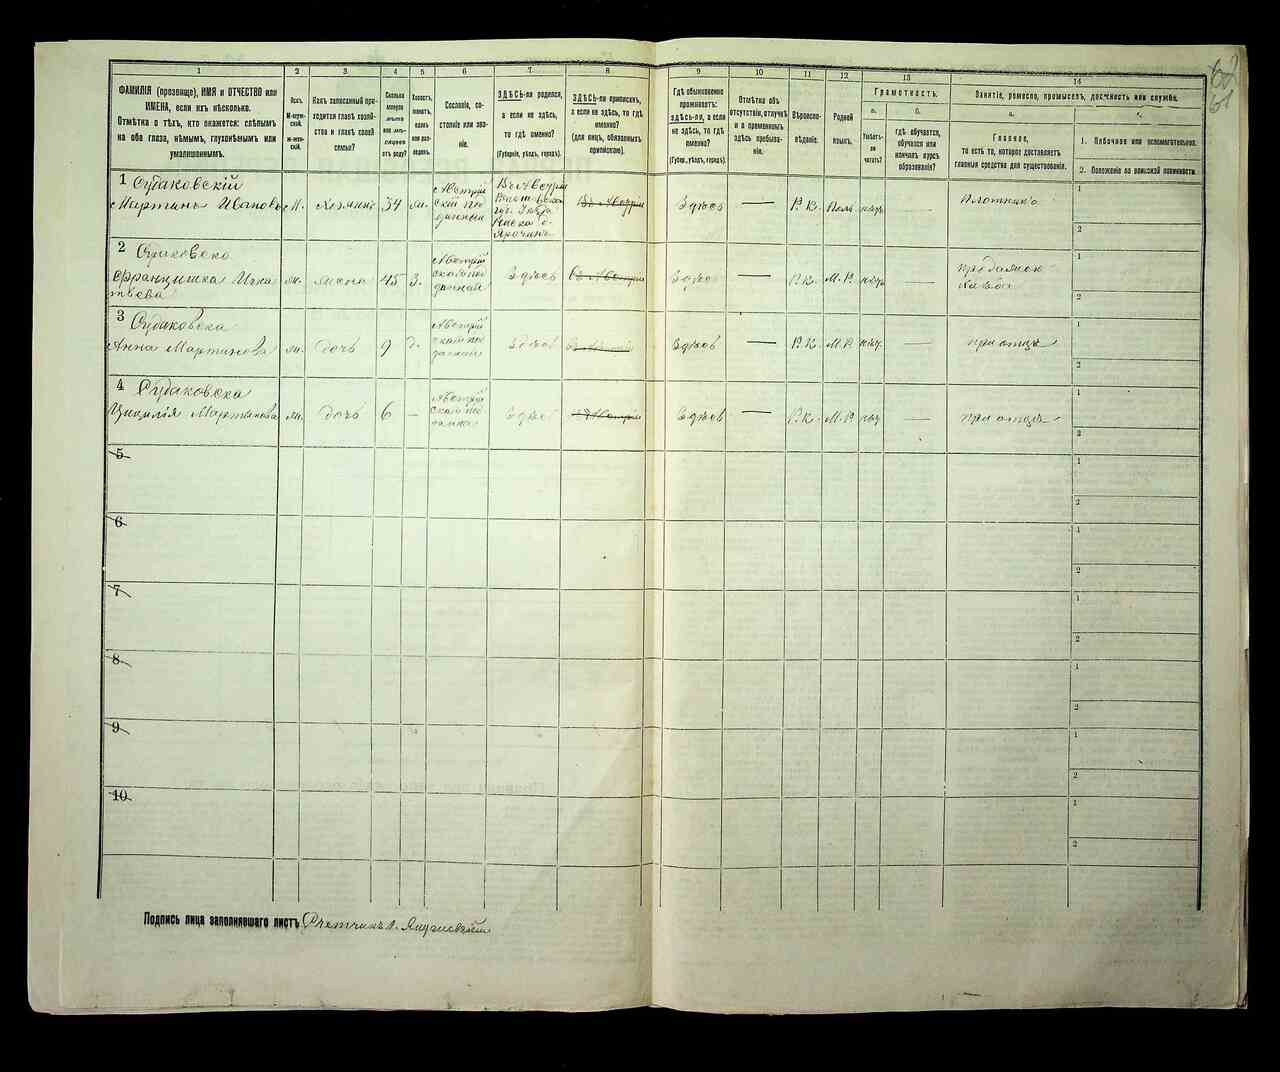 62
61
1 2 3 4 5 6 7 8 9 10 11 12 13 14
ФАМИЛІЯ (прозвище), ИМЯ и ОТЧЕСТВО или
ИМЕНА, если ихъ нѣсколько.
Отмѣтка о тѣхъ, кто окажется: слѣпымъ
на оба глаза, нѣмымъ, глухонѣмымъ или
умалишеннымъ.
Полъ.
М-муж-
ской.
ж-жен-
скій.
Какъ записанный при-
ходится главѣ хозяй-
ства и главѣ своей
семьи?
Сколько
минуло
лѣтъ
или мѣ-
сяцевъ
отъ роду?
Холостъ,
женатъ,
вдовъ
или раз-
веденъ.
Сословіе, со-
стояніе или зва-
ніе.
ЗДѢСЬ-ли родился,
а если не здѣсь,
то гдѣ именно?
(Губернія, уѣздъ, городъ).
ЗДѢСЬ-ли приписанъ,
а если не здѣсь, то гдѣ
именно?
(для лицъ, обязанныхъ
припискою).
Гдѣ обыкновенно
проживаетъ:
здѣсь-ли, а если
не здѣсь, то гдѣ
именно?
(Губер., уѣздъ, городъ).
Отмѣтка объ
отсутствіи, отлучкѣ
и о временномъ
здѣсь пребыва-
ніи.
Вѣроиспо-
вѣданіе.
Родной
языкъ.
Грамотность.
а.
Умѣетъ-
ли
читать?
б.
гдѣ обучается,
обучался или
кончилъ курсъ
образованія?
Занятіе, ремесло, промыселъ, должность или служба.
а.
Главное,
то есть то, которое доставляетъ
главныя средства для существованія.
1. Побочное или вспомогательное.
2. Положеніе по воинской повинности.
1 Судаковскій
Мартинъ Ивановъ М. Хозяинъ 34 ж. Австрій
скій по
данный Въ Австріи
Въ Австріи Здѣсь — Р.К. Поль. нѣтъ — Плотник 1
2
2 Судаковска
Францишка Игна
тьева ж. жена 45 з. Австрій
ская по
данная Здѣсь Въ Австріи Здѣсь — Р.К. М.Р. нѣтъ — 1
2
3 Судаковска
Анна Мартинова ж. дочь 9 Здѣсь Здѣсь — Р.К. М.Р. нѣт — при отцѣ 1
2
4 Судаковска
Цицилія Мартинова ж. дочь 6 — Здѣсь Въ Австріи Здѣсь — Р.К. М.Р. — при отцѣ 1
2
5 1
2
6 1
2
7 1
2
8 1
2
9 1
2
10 1
2
Подпись лица заполнявшаго листъ